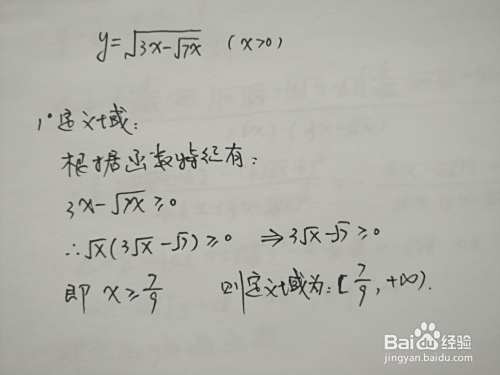 y=√(3x-√7x) (x>0)
1°定义域:
根据函数特征有:
3x-√7x≥0
∴√x(3√x-√7)≥0 ⇒3√x-√7≥0
即 x≥7/9 则定义域为:[7/9,+∞).
Baidu经验
jingyan.baidu.com